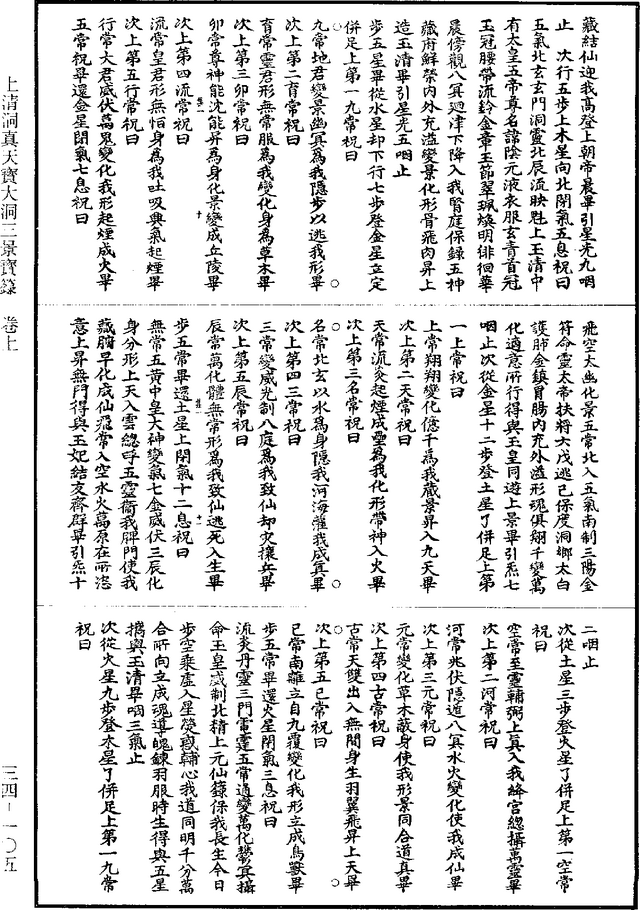 藏結仙迎我高登上朝帝晨畢引星光九咽
止　次行五步上木星向北閉氣五息祝曰
五氣北玄玄門洞靈北辰流映魁上玉清中
有太皇五帝尊名諱陰元液衣服玄青首冠
玉冠腰帶流鈴金章玉節翠珮煥明徘徊華
晨傍觀八冥迴津下降入我腎庭保錄五神
藏府鮮榮內外充溢變景化形骨飛肉昇上
造玉清畢引星光五咽止
步五星畢從水星却下行七步登金星立定
併足上第一九常祝曰
九常地君變景幽冥為我隱步以逃我形畢
次上第二育常祝曰
育常靈君形無常服為我變化身為草木畢
次上第三卯常祝曰
卯常尊神能沈能昇為身化景變成立陵畢
次上第四流常祝曰
流常皇君形無恒身為我吐吸與氣起煙畢
次上第五行常祝曰
行常大君威伏萬鬼變化我形起煙成火畢
五常祝畢還金星閉氣七息祝曰
飛空太幽化景五常北入五氣南制三陽金
符命靈太帝扶將六戊逃已保度洞鄉太白
護肺金鎮胃腸內充外溢形魂俱翔千變萬
化適意所行得與玉皇同遊上景畢引炁七
咽止次從金星十二步登土星了併足上第
一上常祝曰
上常翔翔變化億千為我藏景昇入九天畢
次上第二天常祝曰
天常流炎起煙成壘為我化形帶神入火畢
次上第三名常祝曰
名常北玄以水為身隱我河海灌我成真畢
次上第四三常祝曰
三常變威光制八庭為我致仙却灾攘兵畢
次上第五辰常祝曰
辰常萬化體無常形為我致仙逃死入生畢
步五常畢還土星上閉氣十二息祝曰
無常五黃中皇大神變氣七金威伏三辰化
身分形上天入雲忽呼五靈衛我脾門使我
藏腑早化成仙飛常入空水火萬原在所恣
意上昇無門得與玉妃結友齊群畢引炁十
二咽止
次從土星三步登火星了併足上第一空常
祝曰
空常至靈輔弼上真入我絳宮總攝萬靈畢
次上第二河常祝曰
河常兆伏隱遁八冥水火變化使我成仙畢
次上第三元常祝曰
元常變化草木蔽身使我形景同合道真畢
次上第四古常祝曰
古常天雙出入無間身生羽翼飛昇上天畢
次上第五已常祝曰
已常南離立自九覆變化我形立成鳥獸畢
步五常畢還火星閉氣三息祝曰
流炎丹靈三門電霆五常通變萬化鬱冥攝
命玉皇威制北精上元仙錄保我長生今日
步空乘虛入星熒惑輔心我道同明千分萬
合所向立成魂導魄鍊羽服時生得與五星
攜與玉清畢咽三氣止
次從火星九步登水星了併足上第一九常
祝曰
上清洞真天寶大洞三景寶籙　卷上
三四－一〇五